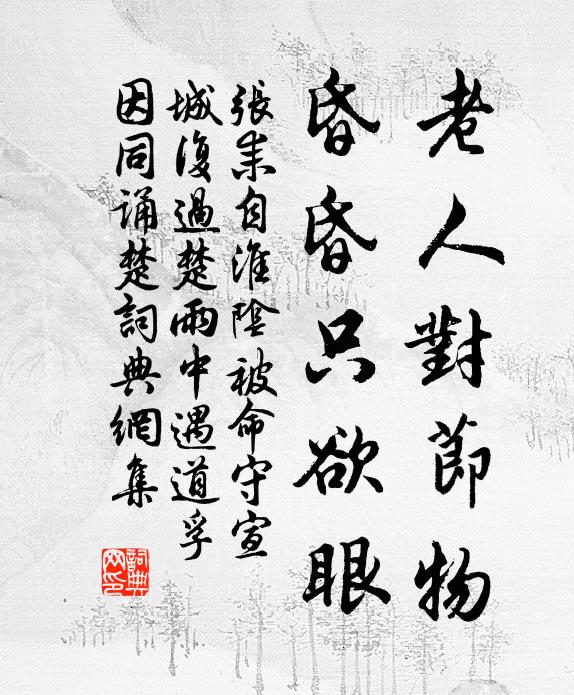 老人對節物
昏昏只欲眼
張耒自淮陰被命守宣
城復過楚雨中遇道孚
因同誦楚詞典網集
詞典網印